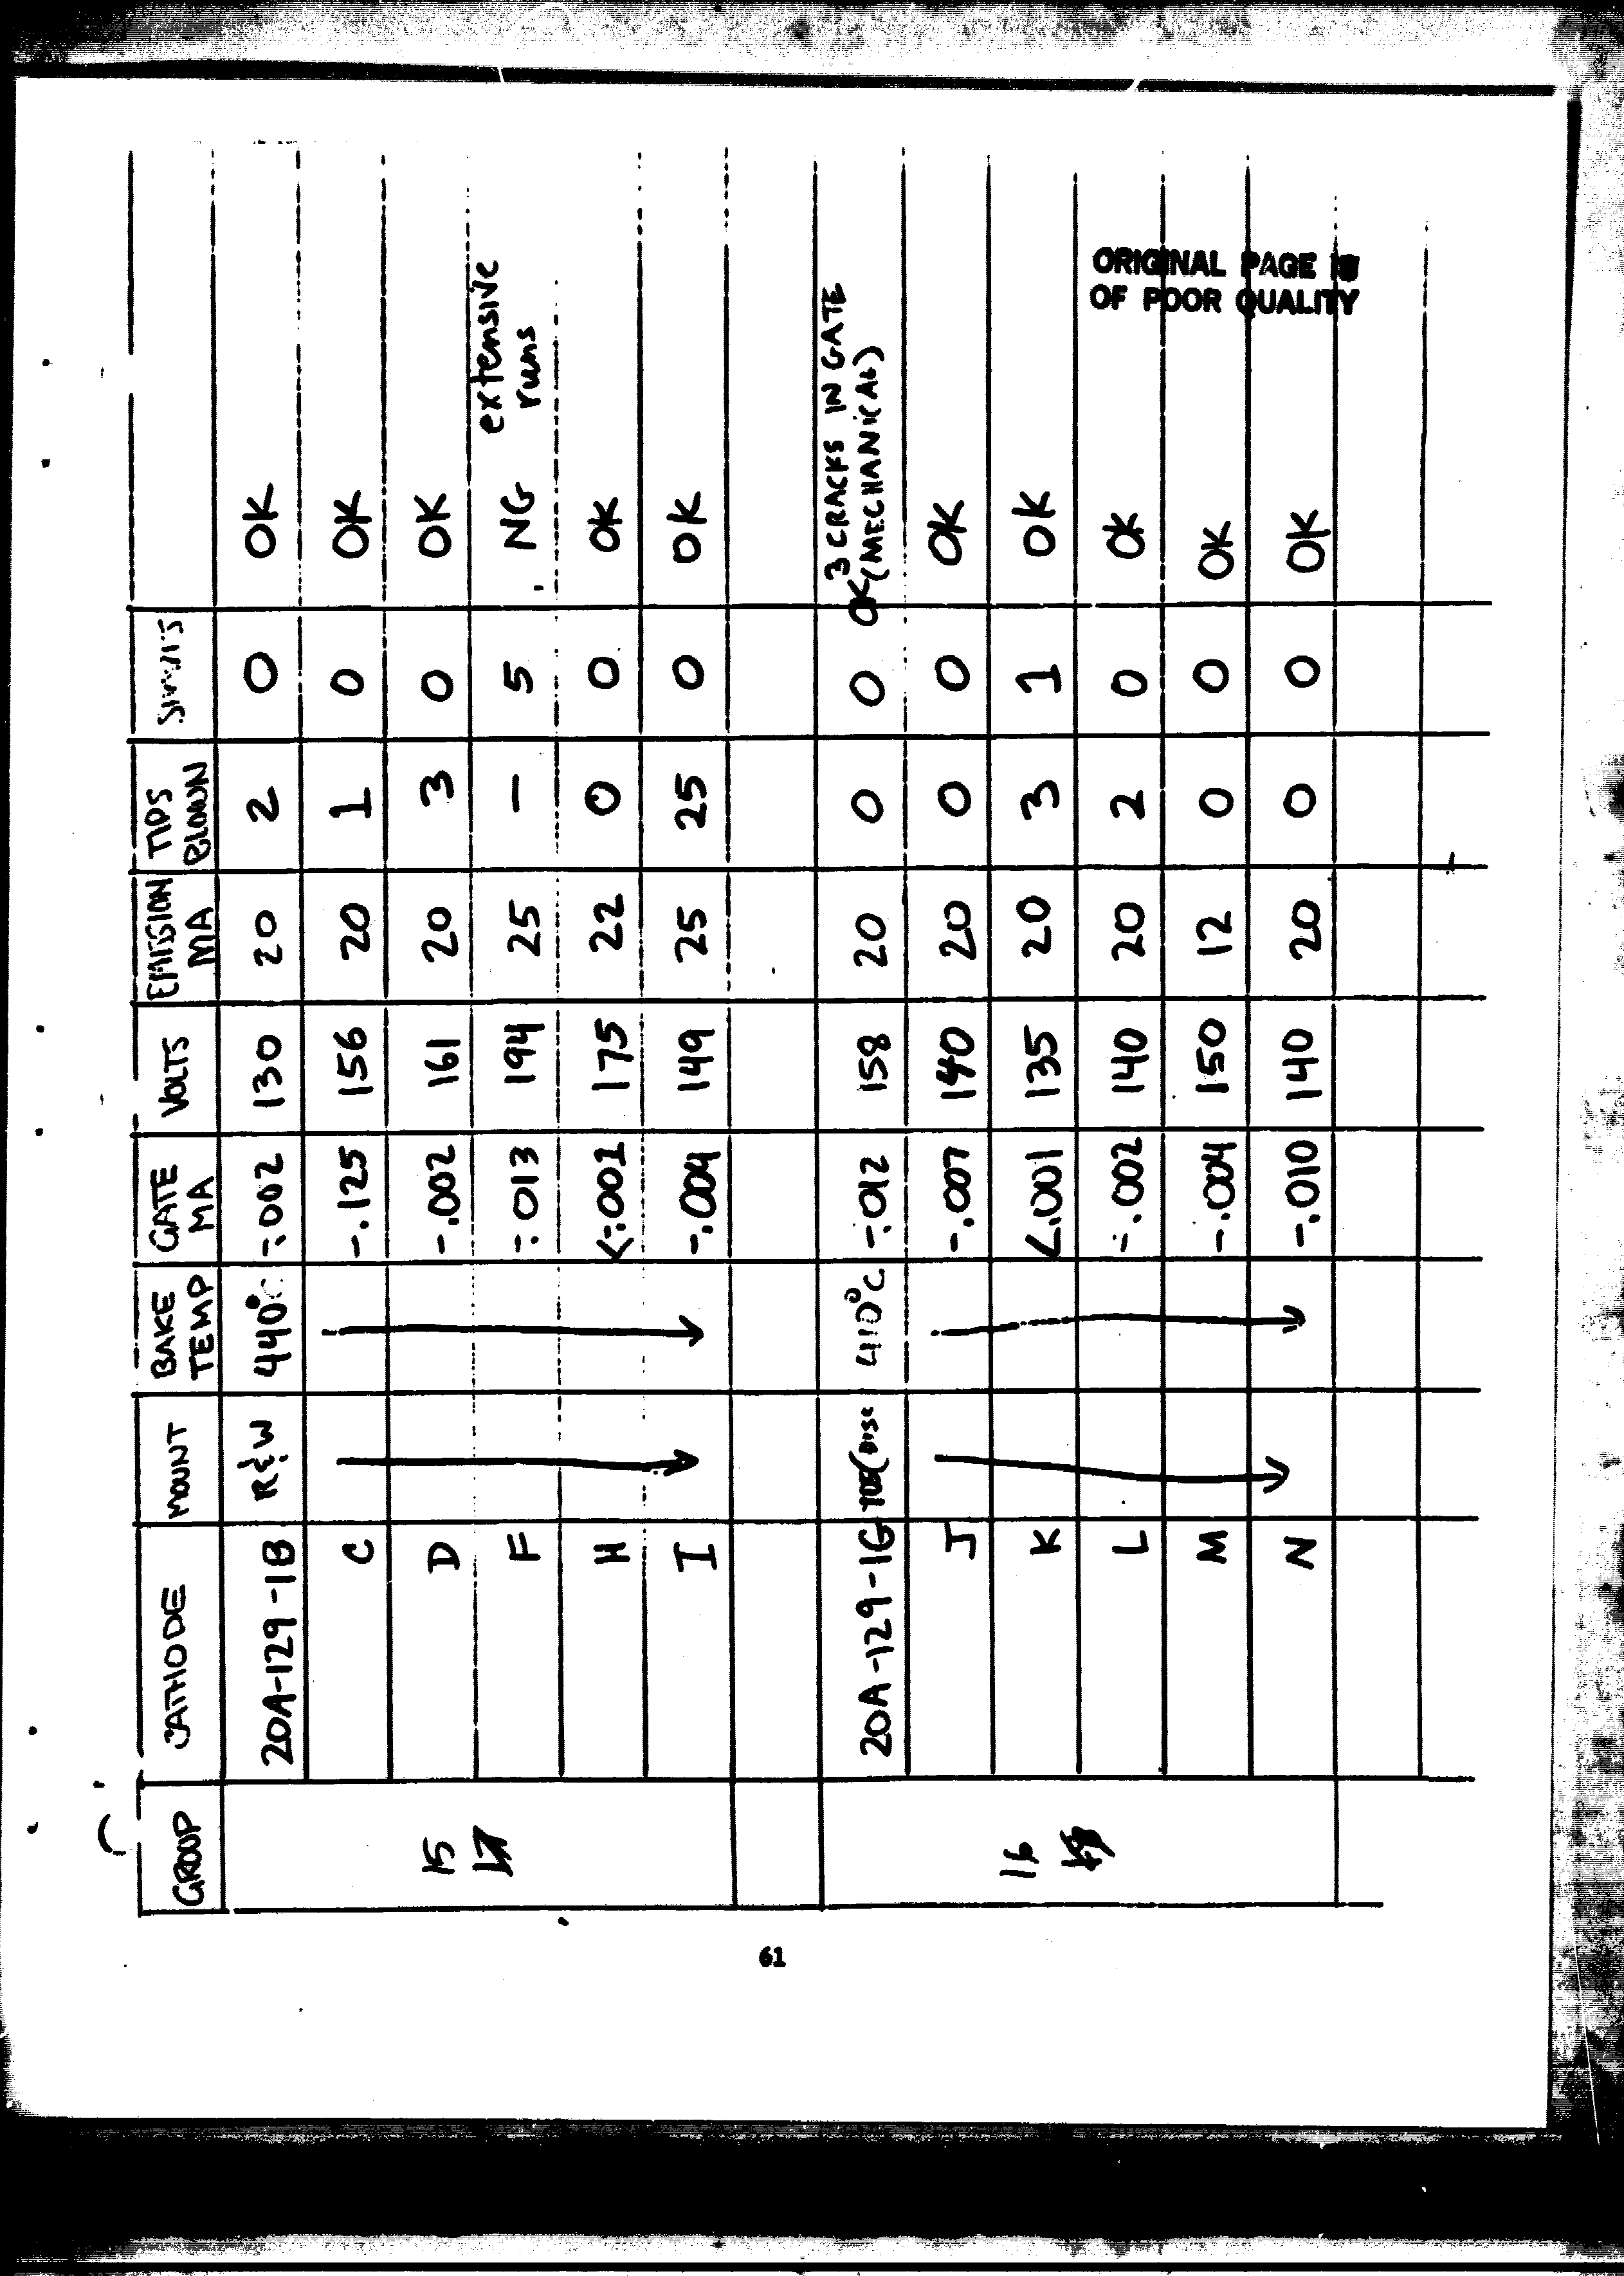 GROUP CATHODE MOUNT BAKE TEMP GATE MA VOLTS EMISSION MA TIPS BLOWN
15 20A-129-1B R&W 440°C -.002 130 20 2 0 OK
C -.125 156 20 1 0 OK
D -.002 161 20 3 0 OK
F -.013 194 25 - 5 NG extensive runs
H <.001 175 22 0 0 OK
I -.004 149 25 25 0 OK
16 20A-129-1G (DISC 410°C -.012 158 20 0 0 OK 3 CRACKS IN GATE (MECHANICAL)
J -.007 140 20 0 0 OK
K <.001 135 20 3 1 OK
L -.002 140 20 2 0 OK
M -.004 150 12 0 0 OK
N -.010 140 20 0 0 OK
ORIGINAL PAGE IS
OF POOR QUALITY
61